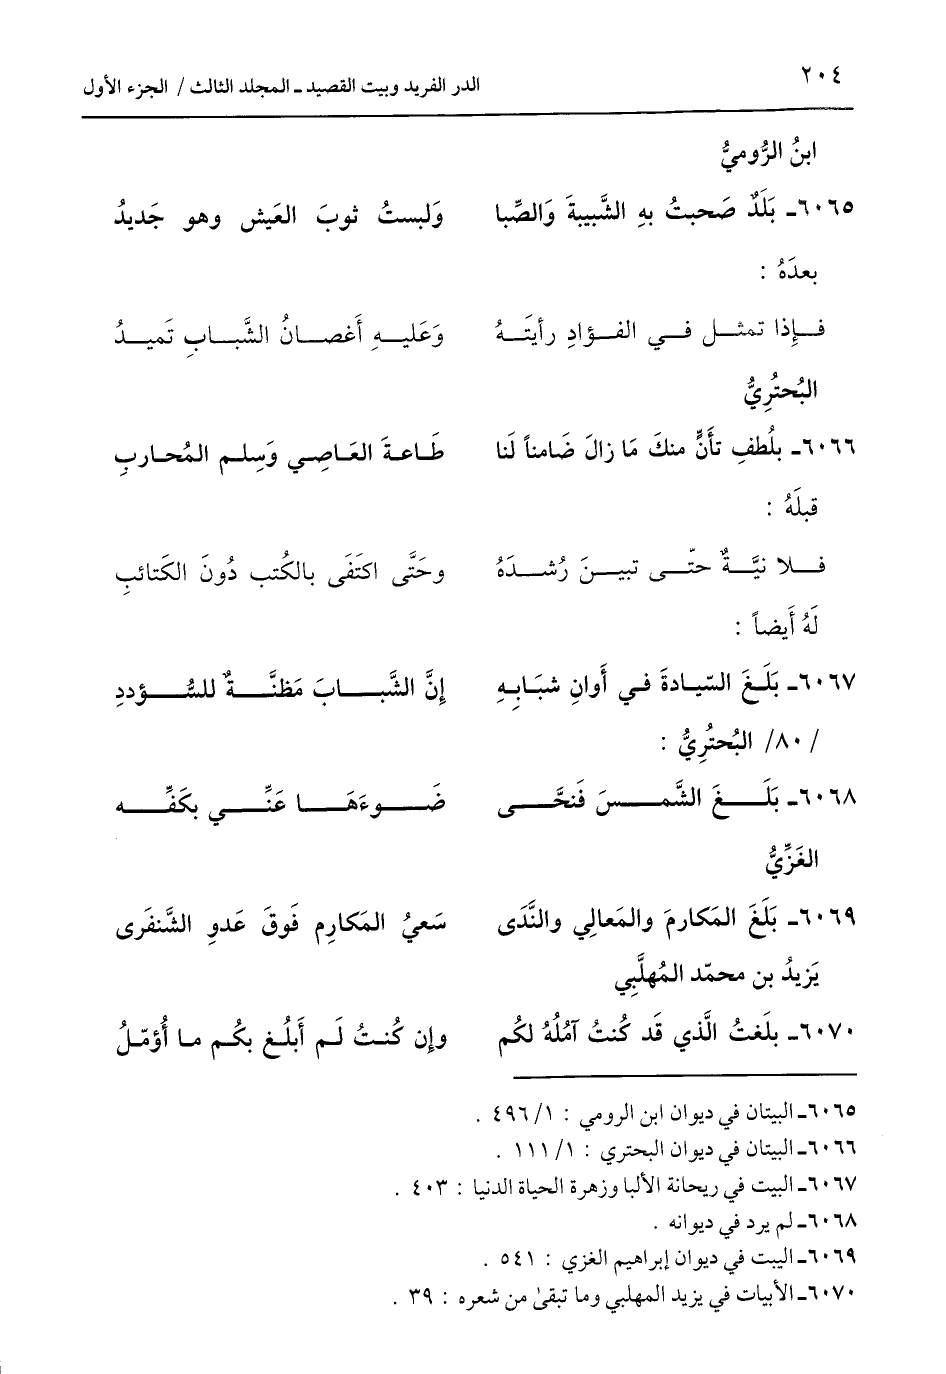 ٢٠٤ الدر الفريد وبيت القصيد ـ المجلد الثالث / الجزء الأول
ابنُ الرُّوميُّ
٦٠٦٥ـ بَلَدٌ صَحبتُ بهِ الشَّبيبةَ وَالصِّبا وَلبستُ ثوبَ العَيش وهو جَديدُ
بعدَهُ :
فـإذا تمثـل فـي الفـؤادِ رأيتَـهُ وَعَليـهِ أَغصـانُ الشَّبـابِ تَميـدُ
البُحتُرِيُّ
٦٠٦٦ـ بلُطفِ تأَنٍّ منكَ مَا زالَ ضَامناً لَنا طَاعةَ العَاصِي وَسِلم المُحاربِ
قبلَهُ :
فـلا نيَّـةٌ حتّـى تبيـنَ رُشـدَهُ وحَتَّى اكتَفَى بالكُتب دُونَ الكَتائبِ
لَهُ أَيضاً :
٦٠٦٧ـ بَلَغَ السّيـادةَ فـي أَوانِ شبَابِـهِ إِنَّ الشَّبـابَ مَظنَّـةٌ للسُّـؤددِ
/ ٨٠/ البُحتُرِيُّ :
٦٠٦٨ـ بَلَـغَ الشَّمـسَ فَنحَّـى ضَـوءَهَـا عَنِّـي بكَفِّـه
الغَزِّيُّ
٦٠٦٩ـ بَلَغَ المَكارمَ والمَعالِي والنَّدَى سَعيُ المَكارِم فَوقَ عَدوِ الشَّنفَرى
يَزيدُ بن محمّد المُهلَّبِي
٦٠٧٠ـ بلَغتُ الَّذي قَد كُنتُ آمُلهُ لكُم وإن كُنتُ لَم أَبلُغ بكُم ما أُؤمّلُ
٦٠٦٥ـ البيتان في ديوان ابن الرومي : ١/ ٤٩٦ .
٦٠٦٦ـ البيتان في ديوان البحتري : ١/ ١١١ .
٦٠٦٧ـ البيت في ريحانة الألبا وزهرة الحياة الدنيا : ٤٠٣ .
٦٠٦٨ـ لم يرد في ديوانه .
٦٠٦٩ـ البيت في ديوان إبراهيم الغزي : ٥٤١ .
٦٠٧٠ـ الأبيات في يزيد المهلبي وما تبقىٰ من شعره : ٣٩ .